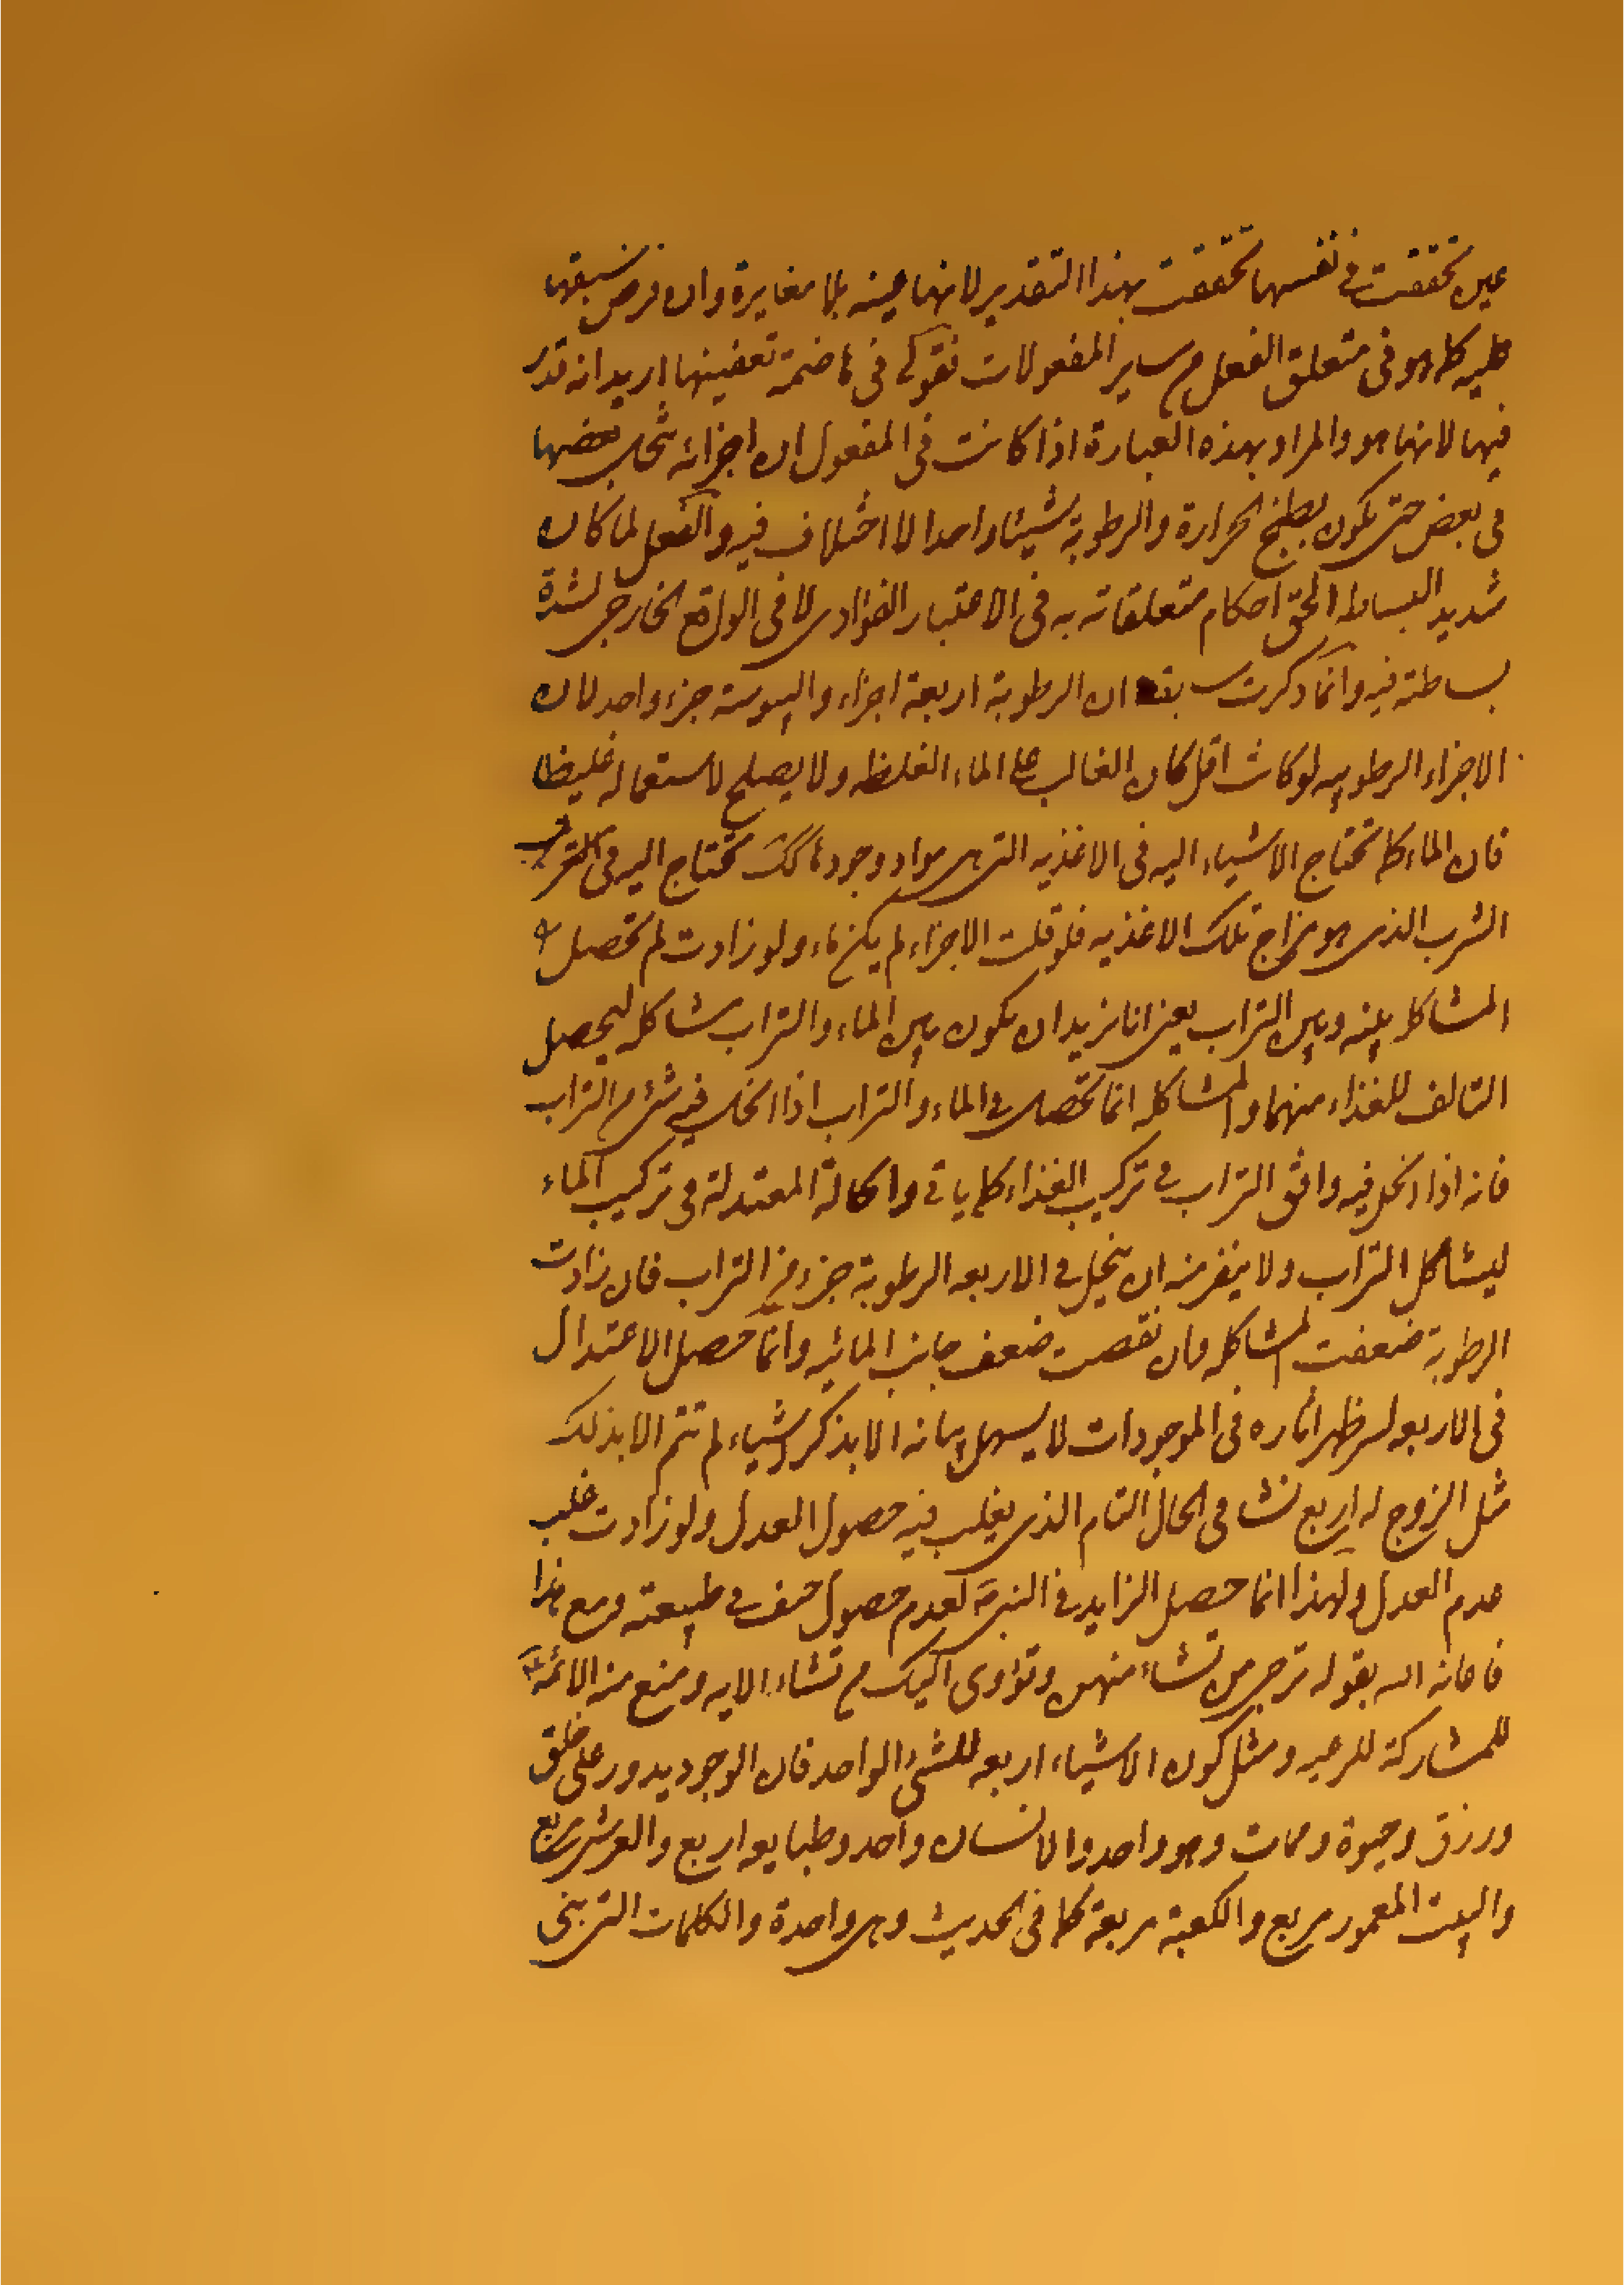 عين تحققت في نفسها تحققت بهذا التقدير لانها عينه بلا مغايرة وان فرض سبقها
عليه كما هو في متعلق الفعل من ساير المفعولات فقولي في هاضمة تعفينها اريد انه قدر
فيها لانها هو والمراد بهذه العبارة اذا كانت في المفعول ان اجزائه تنحل بعضها
في بعض حتى يكون بطبخ الحرارة والرطوبة شيئا واحدا لا اختلاف فيه والفعل لما كان
شديد البساطه الحق احكام متعلقاته به في الاعتبار الفؤادي لا في الواقع الخارجي لشدة
بساطته فيه وانما ذكرت سابقا ان الرطوبة اربعة اجزاء واليبوسته جزء واحد لان
الاجزاء الرطوبيه لو كانت اقل كان الغالب على الماء الغلظه ولا يصلح لاستعماله غليظا
فان الماء كما تحتاج الاشياء اليه في الاغذيه التي هي مواد وجودها كك تحتاج اليه في
الشرب الذي هو مزاج تلك الاغذيه فلو قلت الاجزاء لم يكن ماء ولو زادت لم تحصل
المشاكله بينه وبين التراب يعني انا نريد ان يكون بين الماء والتراب مشاكله ليحصل
التالف للغذاء منهما والمشاكله انما تحصل في الماء والتراب اذا انحل فيه شئ من التراب
فانه اذا انحل فيه وافق التراب في تركيب الغذاء كما ياتي والحالة المعتدلة في تركيب الماء
ليشاكل التراب ولا ينفر منه ان ينحل في الاربعه الرطوبة جزء من التراب فان زادت
الرطوبة ضعفت المشاكله وان نقصت ضعف جانب المائيه وانما حصل الاعتدال
في الاربعه لسر ظهر اثاره في الموجودات لا يسهل بيانه الا بذكر اشياء لم تتم الا بذلك
مثل الزوج له اربع نسا في الحال التام الذي يغلب فيه حصول العدل ولو زادت غلب
عدم العدل ولهذا انما حصل الزايد في النبي لعدم حصول حيف في طبيعته ومع هذا
فاعانه الله بقوله ترجي من تشاء منهن وتؤوى اليك من تشاء الايه ومنع منه الائمة
للمشاركة للرعيه ومثل كون الاشياء اربعه للشئ الواحد فان الوجود يدور على خلق
ورزق وحيوة وممات وهو واحد والانسان واحد وطبايعه اربع والعرش مربع
والبيت المعمور مربع والكعبة مربعة كما في الحديث وهي واحدة والكلمات التي بني